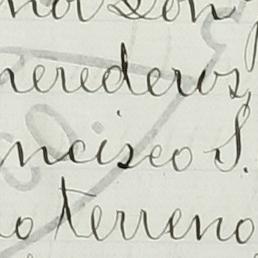 herederos,
ncisco S.
o terreno